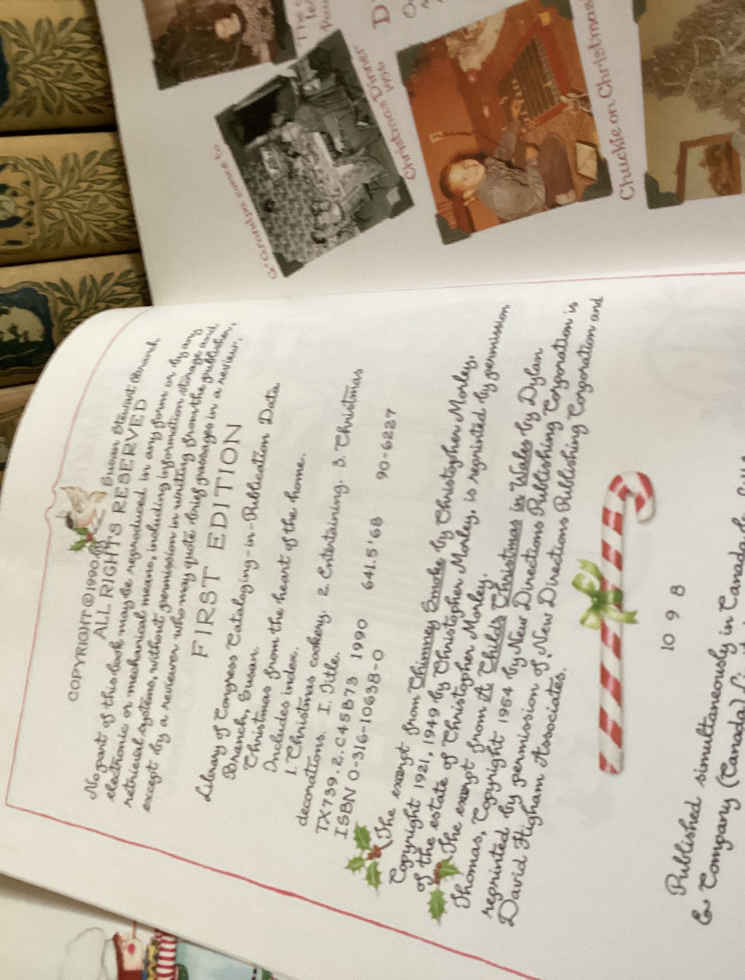 COPYRIGHT © 1990 by Susan Stewart Branch
ALL RIGHTS RESERVED
No part of this book may be reproduced in any form or by any
electronic or mechanical means, including information storage and
retrieval systems, without permission in writing from the publisher,
except by a reviewer who may quote brief passages in a review.
FIRST EDITION
Library of Congress Cataloging-in-Publication Data
Branch, Susan.
Christmas from the heart of the home.
Includes index.
1. Christmas cookery. 2. Entertaining. 3. Christmas
decorations. I. Title.
TX739.2.C45B73 1990 641.5'68 90-6237
ISBN 0-316-10638-0
The excerpt from Chimney Smoke by Christopher Morley,
Copyright 1921, 1949 by Christopher Morley, is reprinted by permission
of the estate of Christopher Morley.
The excerpt from A Child's Christmas in Wales by Dylan
Thomas, Copyright 1954 by New Directions Publishing Corporation is
reprinted by permission of New Directions Publishing Corporation and
David Higham Associates.
10 9 8
Published simultaneously in Canada by
& Company (Canada)
Grandpa
Christmas Dinner
Chuckle on Christmas